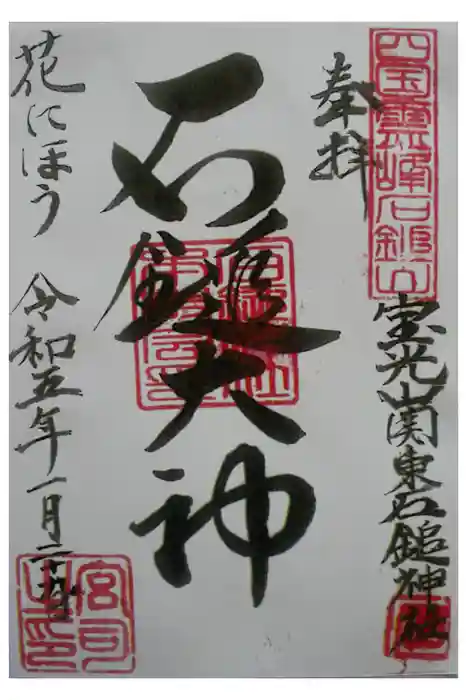 四国霊峰石鎚山
宝光山関東石鎚神社
奉拝
石鎚大神
花にほう
令和五年一月二
宮司
之印